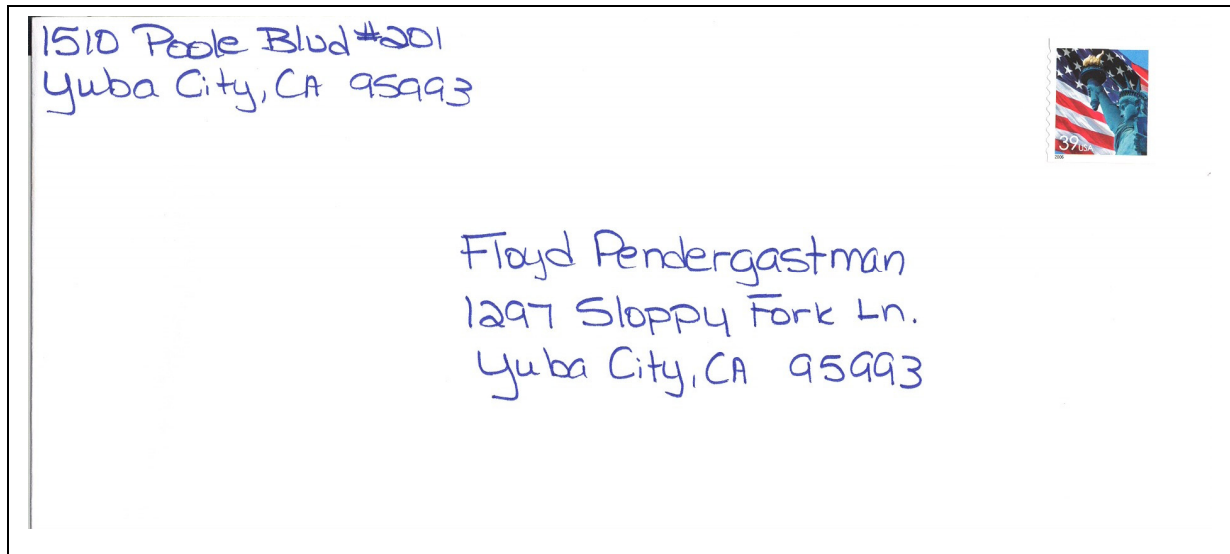 1510 Poole Blvd #201
Yuba City, CA 95993
39 USA
2006
Floyd Pendergastman
1297 Sloppy Fork Ln.
Yuba City, CA 95993